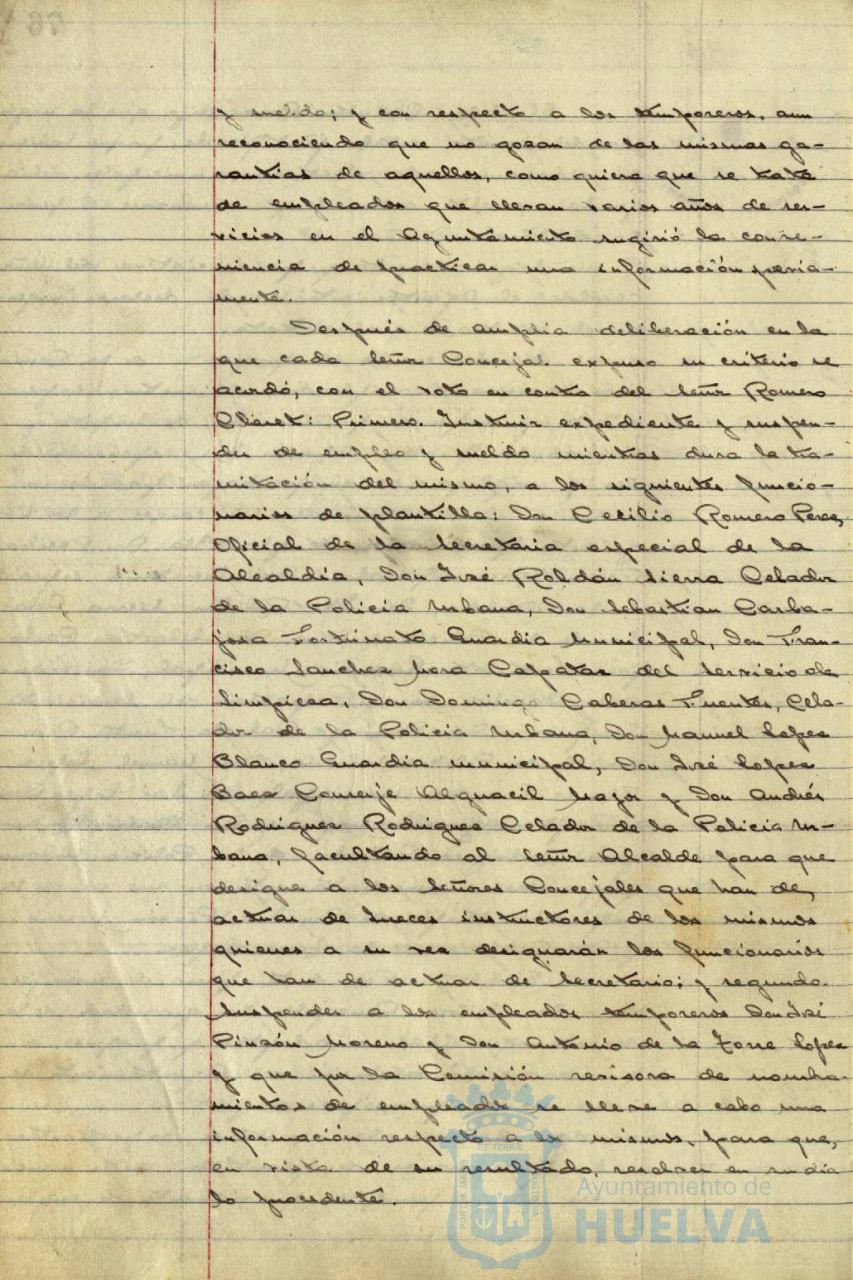 y sueldo; y con respecto a los temporeros, aun
reconociendo que no gozan de las mismas ga-
rantias de aquellos, como quiera que se trata
de empleados que llevan varios años de ser-
vicios en el Ayuntamiento sugirió la conve-
niencia de practicar una información previa-
mente.
Después de amplia deliberación en la
que cada Señor Concejal expuso su criterio se
acordó, con el voto en contra del Señor Romero
Claret: Primero. Instruir expediente y suspen-
der de empleo y sueldo mientras dura la tra-
mitación del mismo, a los siguientes funcio-
narios de plantilla: Don Cecilio Romero Perez,
Oficial de la Secretaria especial de la
Alcaldía, Don José Roldán Sierra Celador
de la Policia Urbana, Don Sebastian Carba-
josa Fortunato Guardia Municipal, Don Fran-
cisco Sanchez Mora Capataz del Servicio de
limpieza, Don Domingo Caberas Fuentes, Cela-
dor de la Policia Urbana, Don Manuel Lopez
Blanco Guardia municipal, Don José Lopez
Baez Conserje Alguacil Mayor y Don Andrés
Rodriguez Rodriguez Celador de la Policia Ur-
bana, facultando al Señor Alcalde para que
designe a los Señores Concejales que han de
actuar de Jueces instructores de los mismos
quienes a su vez designarán los funcionarios
que han de actuar de Secretario; y segundo.
Suspender a los empleados temporeros Don José
Pinzón Moreno y Don Antonio de la Torre Lopez
y que por la Comisión revisora de nombra-
mientos de empleados se lleve a cabo una
información respecto a los mismos, para que,
en vista de su resultado, resolver en su dia
lo procedente.
Ayuntamiento de
HUELVA